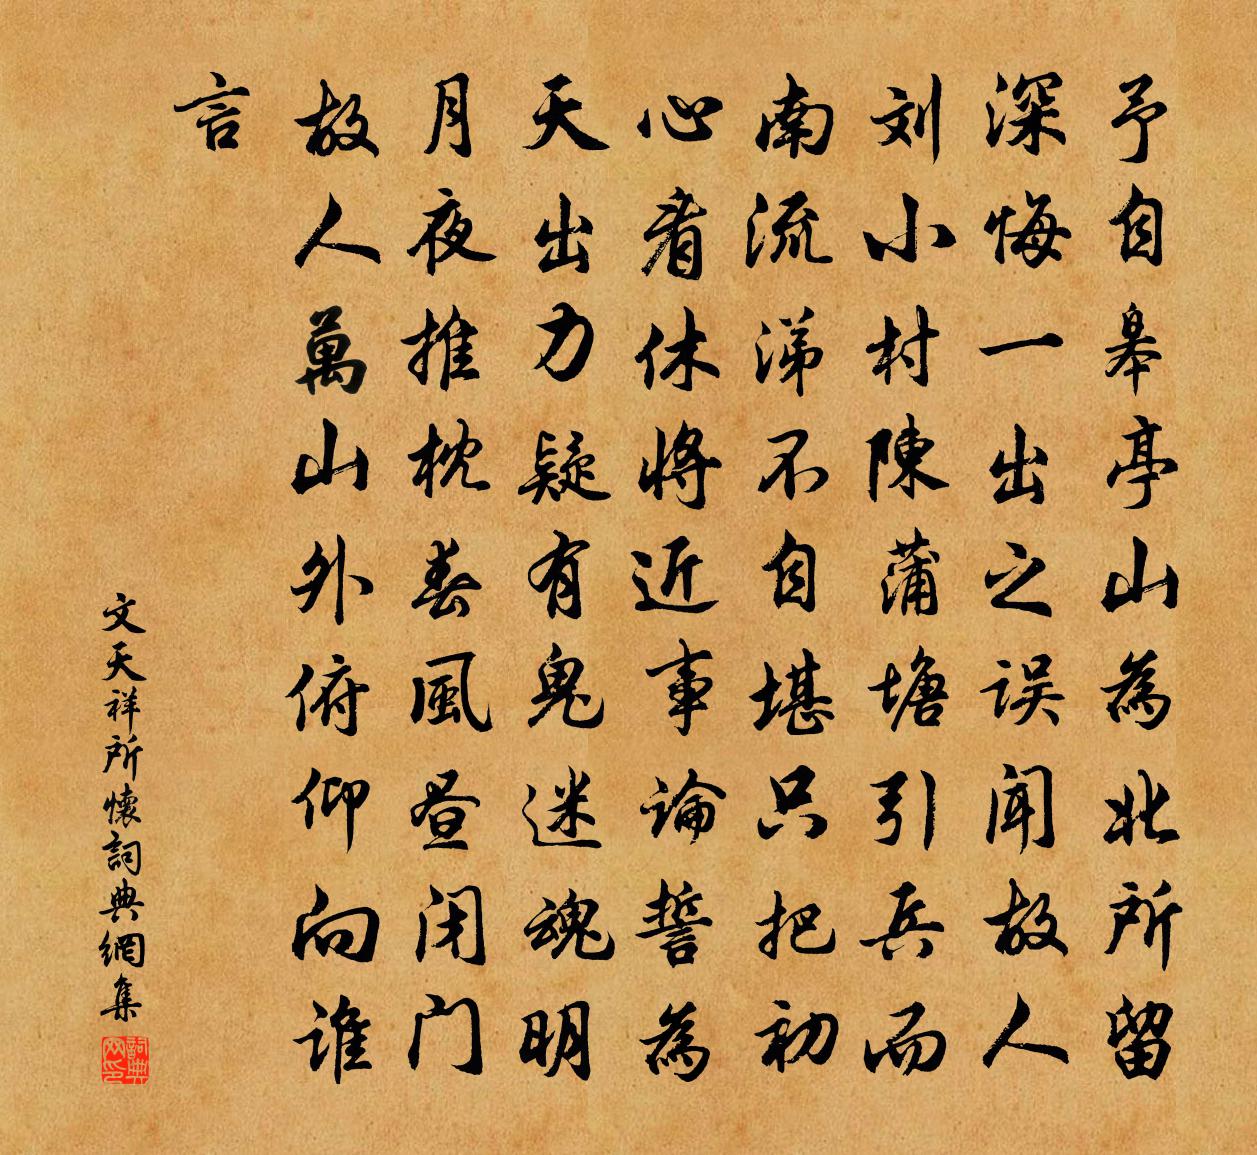 予自皋亭山為北所留
深悔一出之误闻故人
刘小村陳蒲塘引兵而
南流涕不自堪只把初
心看休将近事論誓為
天出力疑有鬼迷魂明
月夜推枕春風昼闭门
故人萬山外俯仰向谁
言
文天祥所懷詞典網集
詞典网印